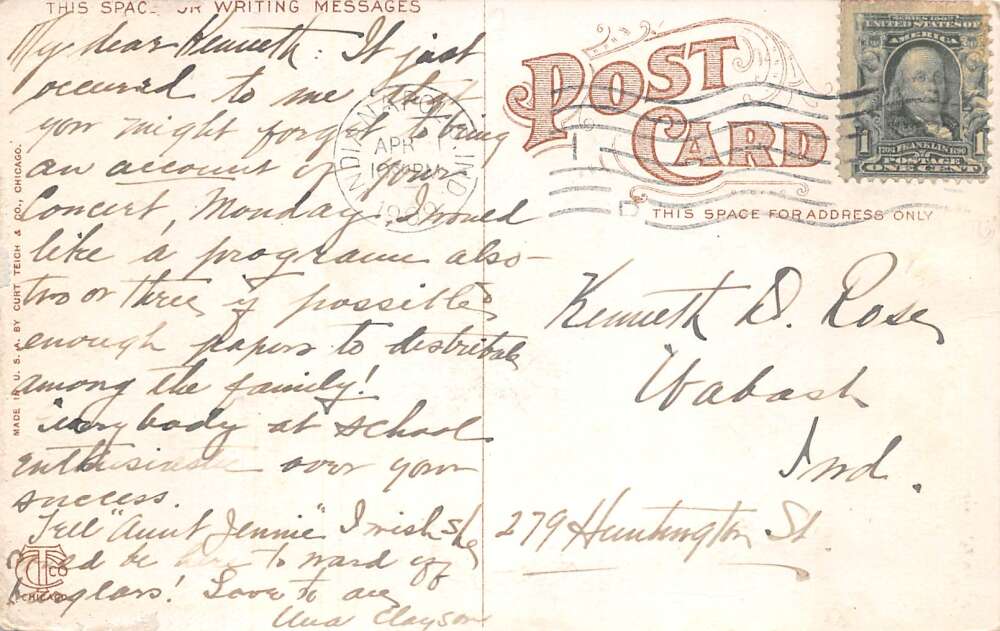 THIS SPACE OR WRITING MESSAGES
My dear Kenneth: It just
occurred to me that
you might forget to bring
an account of your
Concert, Monday. I would
like a program also—
two or three if possible,
enough papers to distribute
among the family!
Everybody at school
enthusiastic over your
success.
Tell "Aunt Jennie" I wish she
be here to ward off
burglars! Love to all
Clayson
MADE IN U. S. A. BY CURT TEICH & CO., CHICAGO.
CT CO
CHICAGO
POST CARD
THIS SPACE FOR ADDRESS ONLY
INDIANAPOLIS, IND
APR
1909
SERIES 1902
UNITED STATES OF
AMERICA
1 1
1706 FRANKLIN 1790
POSTAGE
ONE CENT
Kenneth D. Rose,
Wabash
Ind.
279 Huntington St